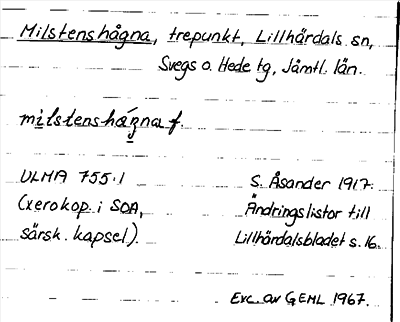 Milstenshågna, trepunkt, Lillhärdals sn,
Svegs o. Hede tg, Jämtl. län.
milstenshågna f.
ULMA 755:1
(xerokop. i SOA,
särsk. kapsel).
S. Åsander 1917.
Ändringslistor till
Lillhärdalsbladet s. 16.
Exc. av GEHL 1967.